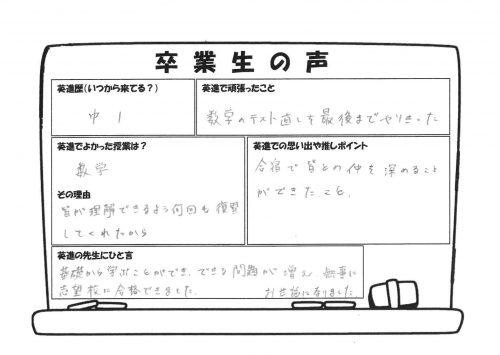 卒業生の声
英進歴(いつから来てる?)
中1
英進で頑張ったこと
数学のテスト直しを最後までやりきった
英進でよかった授業は?
数学
その理由
皆が理解できるよう何回も復習
してくれたから
英進での思い出や推しポイント
合宿で皆との仲を深めること
ができたこと。
英進の先生にひと言
基礎から学ぶことができ、できる問題が増え 無事に
志望校に合格できました。 お世話になりました。